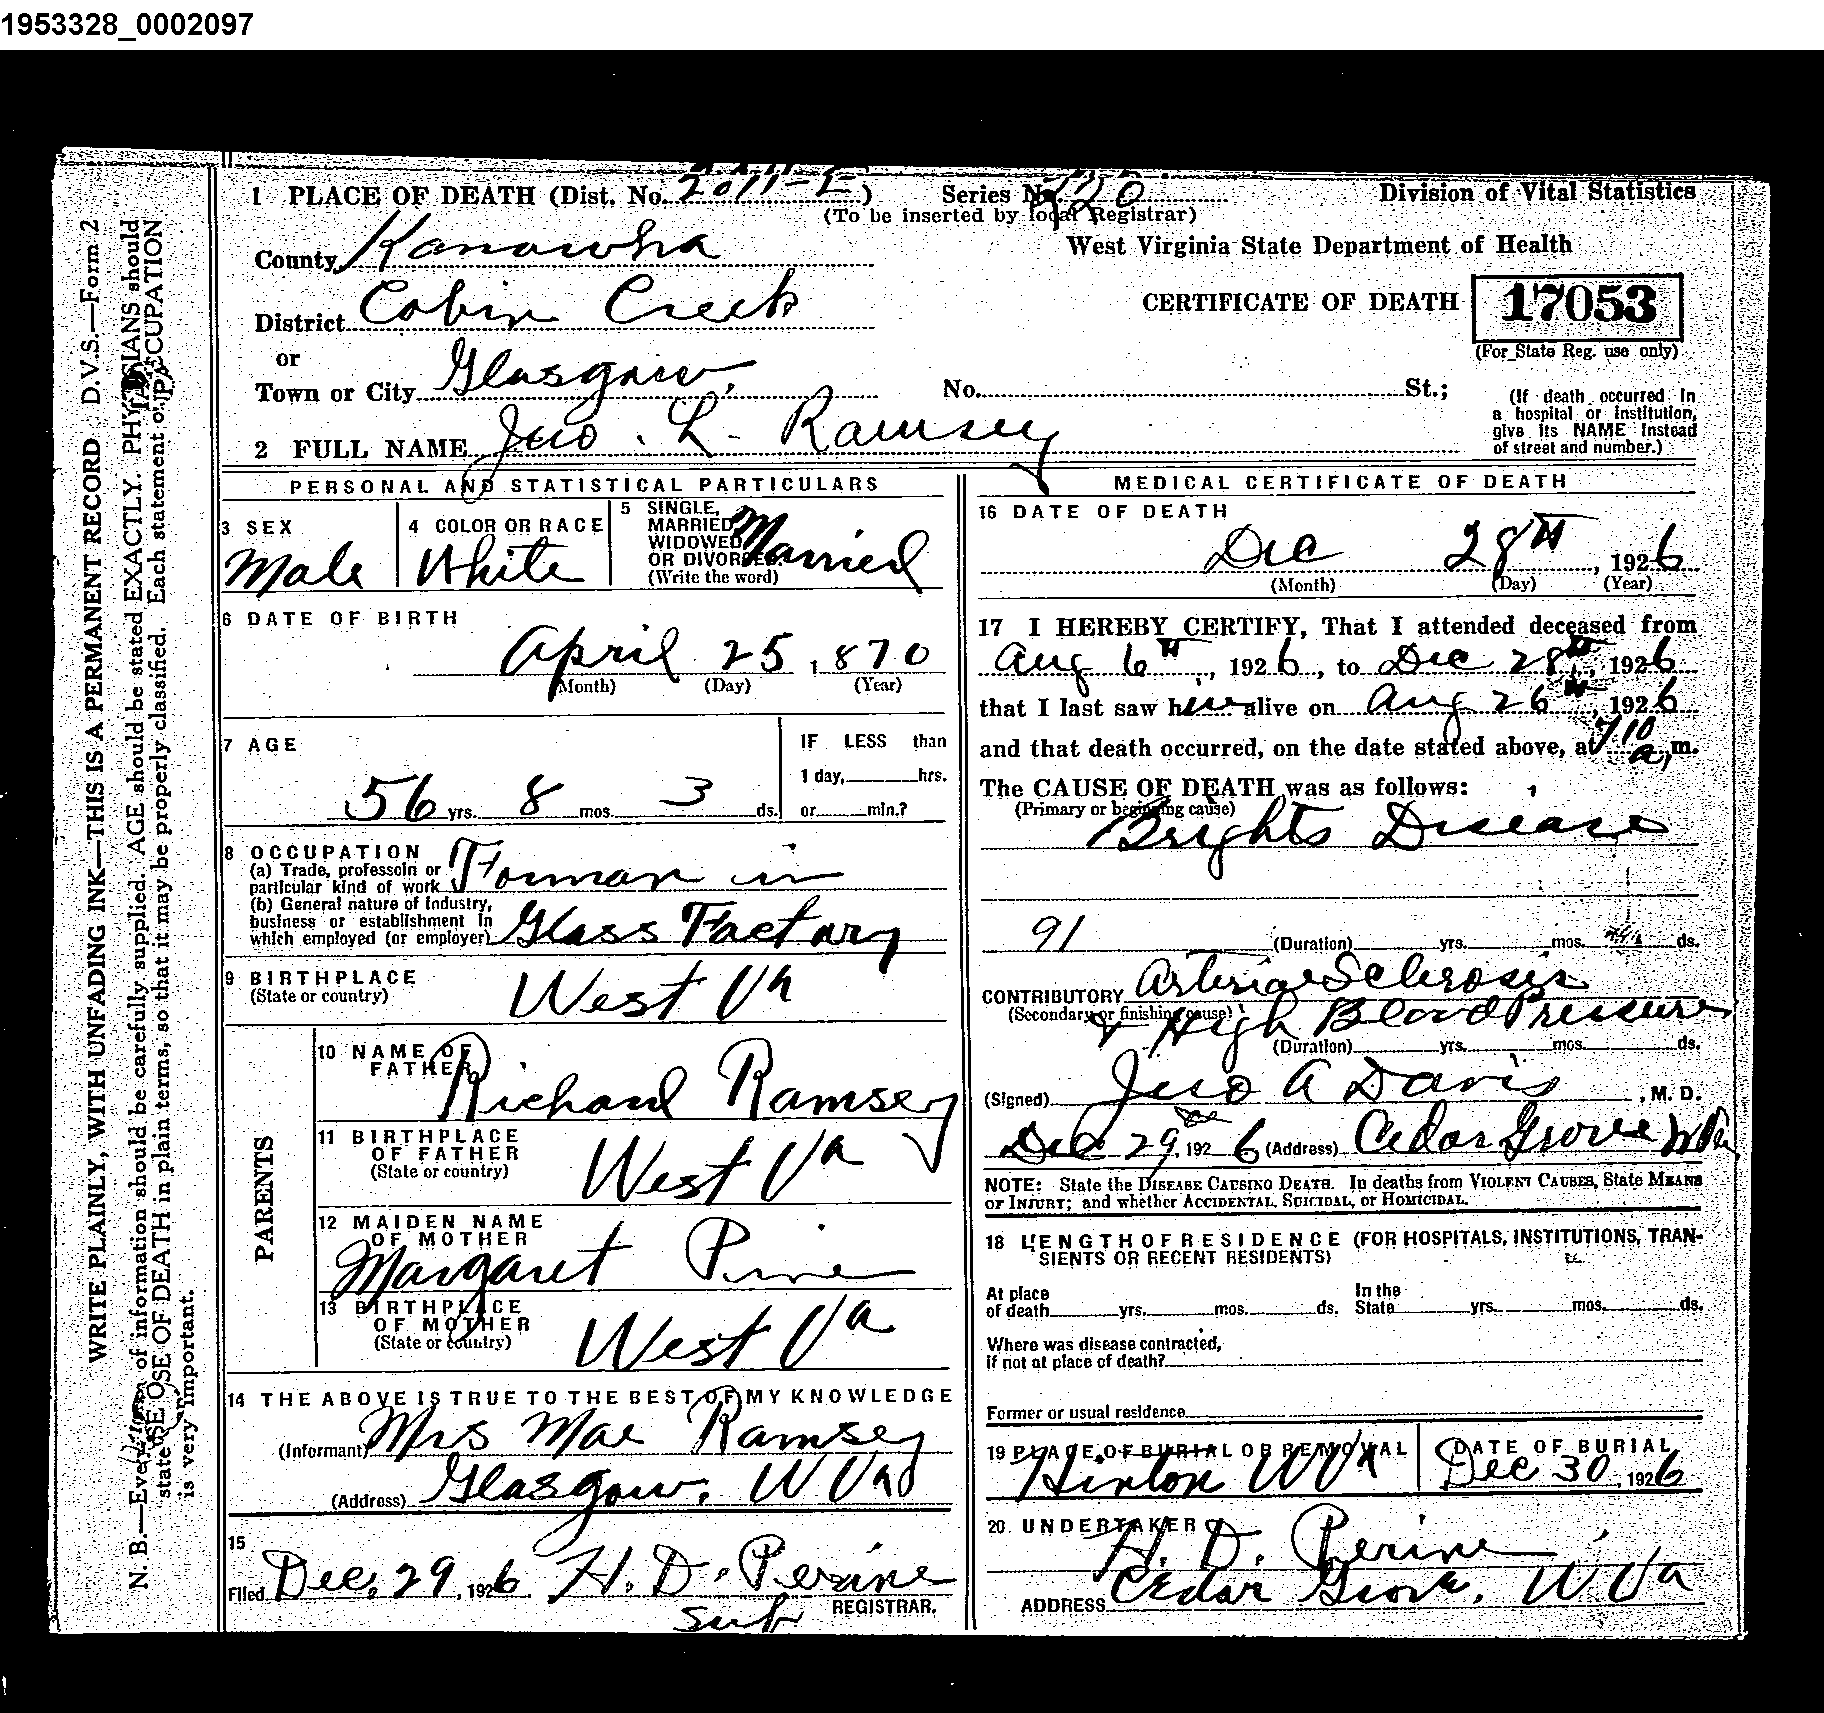 1953328_0002097
1 PLACE OF DEATH (Dist. No. 2011-E) Series No. 120 Division of Vital Statistics
(To be inserted by local Registrar)
County Kanawha West Virginia State Department of Health
District Cobin Creek CERTIFICATE OF DEATH 17053
or (For State Reg. use only)
Town or City Glasgow, No. St.; (If death occurred in
a hospital or institution,
give its NAME instead
of street and number.)
2 FULL NAME Jno. L. Ramsey
PERSONAL AND STATISTICAL PARTICULARS
3 SEX
Male
4 COLOR OR RACE
White
5 SINGLE,
MARRIED,
WIDOWED
OR DIVORCED
(Write the word)
Married
6 DATE OF BIRTH
April 25, 1870
(Month) (Day) (Year)
7 AGE
56 yrs. 8 mos. 3 ds.
IF LESS than
1 day, hrs.
or min.?
8 OCCUPATION
(a) Trade, professoin or
particular kind of work Forman in
(b) General nature of Industry,
business or establishment in
which employed (or employer) Glass Factory
9 BIRTHPLACE
(State or country) West Va
PARENTS
10 NAME OF
FATHER Richard Ramsey
11 BIRTHPLACE
OF FATHER
(State or country) West Va
12 MAIDEN NAME
OF MOTHER
Margaret Pine
13 BIRTHPLACE
OF MOTHER
(State or country) West Va
14 THE ABOVE IS TRUE TO THE BEST OF MY KNOWLEDGE
(Informant) Mrs Mae Ramsey
(Address) Glasgow, W Va
15
Filed Dec. 29, 1926 H. D. Perine
sub REGISTRAR.
MEDICAL CERTIFICATE OF DEATH
16 DATE OF DEATH
Dec 28TH, 1926
(Month) (Day) (Year)
17 I HEREBY CERTIFY, That I attended deceased from
Aug 6TH, 1926, to Dec 28TH, 1926
that I last saw him alive on Aug 26TH, 1926
and that death occurred, on the date stated above, at 710 a, m.
The CAUSE OF DEATH was as follows:
(Primary or beginning cause)
Brights Disease
91 (Duration) yrs. mos. ds.
CONTRIBUTORY Arterio Sclerosis
(Secondary or finishing cause) & High Blood Pressure
(Duration) yrs. mos. ds.
(Signed) Jno A Davis, M. D.
Dec 29, 1926 (Address) Cedar Grove W Va
NOTE: State the DISEASE CAUSING DEATH. In deaths from VIOLENT CAUSES, State MEANS
OF INJURY; and whether ACCIDENTAL, SUICIDAL, or HOMICIDAL.
18 LENGTH OF RESIDENCE (FOR HOSPITALS, INSTITUTIONS, TRAN-
SIENTS OR RECENT RESIDENTS)
At place In the
of death yrs. mos. ds. State yrs. mos. ds.
Where was disease contracted,
if not at place of death?
Former or usual residence
19 PLACE OF BURIAL OR REMOVAL
Hinton W Va
DATE OF BURIAL
Dec 30, 1926
20. UNDERTAKER
H. D. Perine
ADDRESS Cedar Grove, W Va
WRITE PLAINLY, WITH UNFADING INK—THIS IS A PERMANENT RECORD D.V.S.—Form 2
N. B.—Every item of information should be carefully supplied. AGE should be stated EXACTLY. PHYSICIANS should
state CAUSE OF DEATH in plain terms, so that it may be properly classified. Each statement of OCCUPATION
is very important.